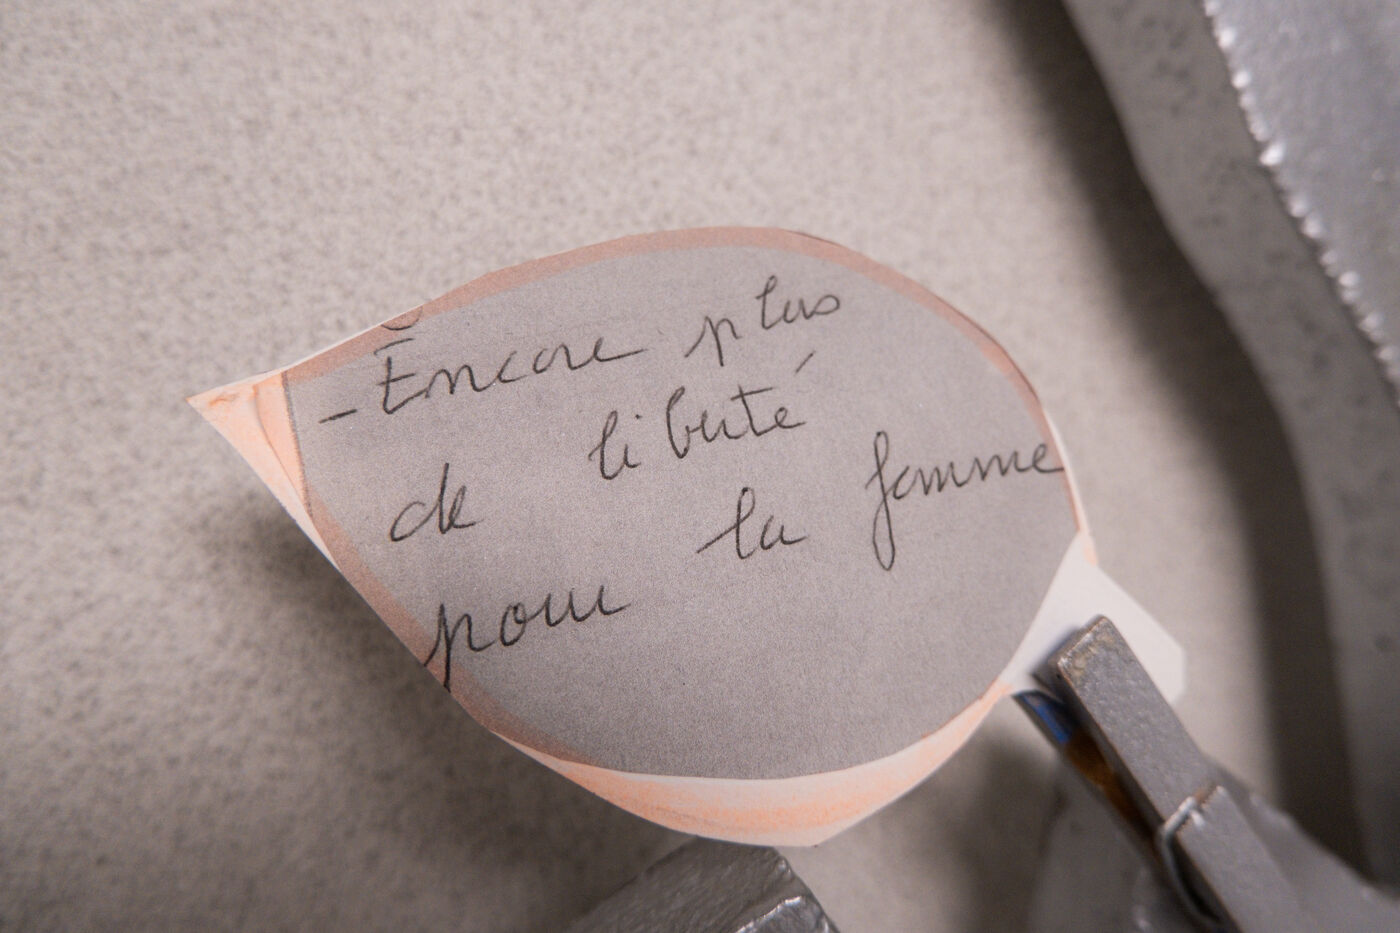 - Encore plus
de liberté
pour la femme